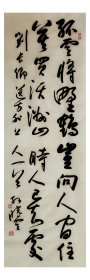 孤雲將野鶴豈向人間住
莫買沃洲山時人已知處
劉長卿送方外上
人一首